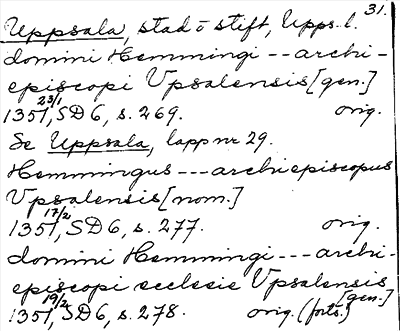 31.
Uppsala, stad o stift, Upps. l.
domini Hemmingi --- archi-
episcopi Vpsalensis [gen.]
1351 23/1, SD 6, s. 269. orig.
Se Uppsala, lapp nr 29.
Hemmingus --- archiepiscopus
Vpsalensis [nom.]
1351 17/2, SD 6, s. 277. orig.
domini Hemmingi --- archi-
episcopi ecclesie Vpsalensis
[gen.]
1351 19/2, SD 6, s. 278. orig. (forts.)